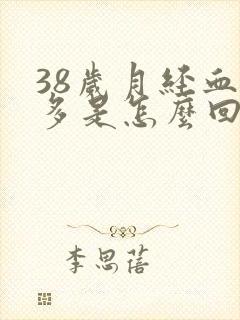 38歲月經血
多是怎麼回
李思蓓